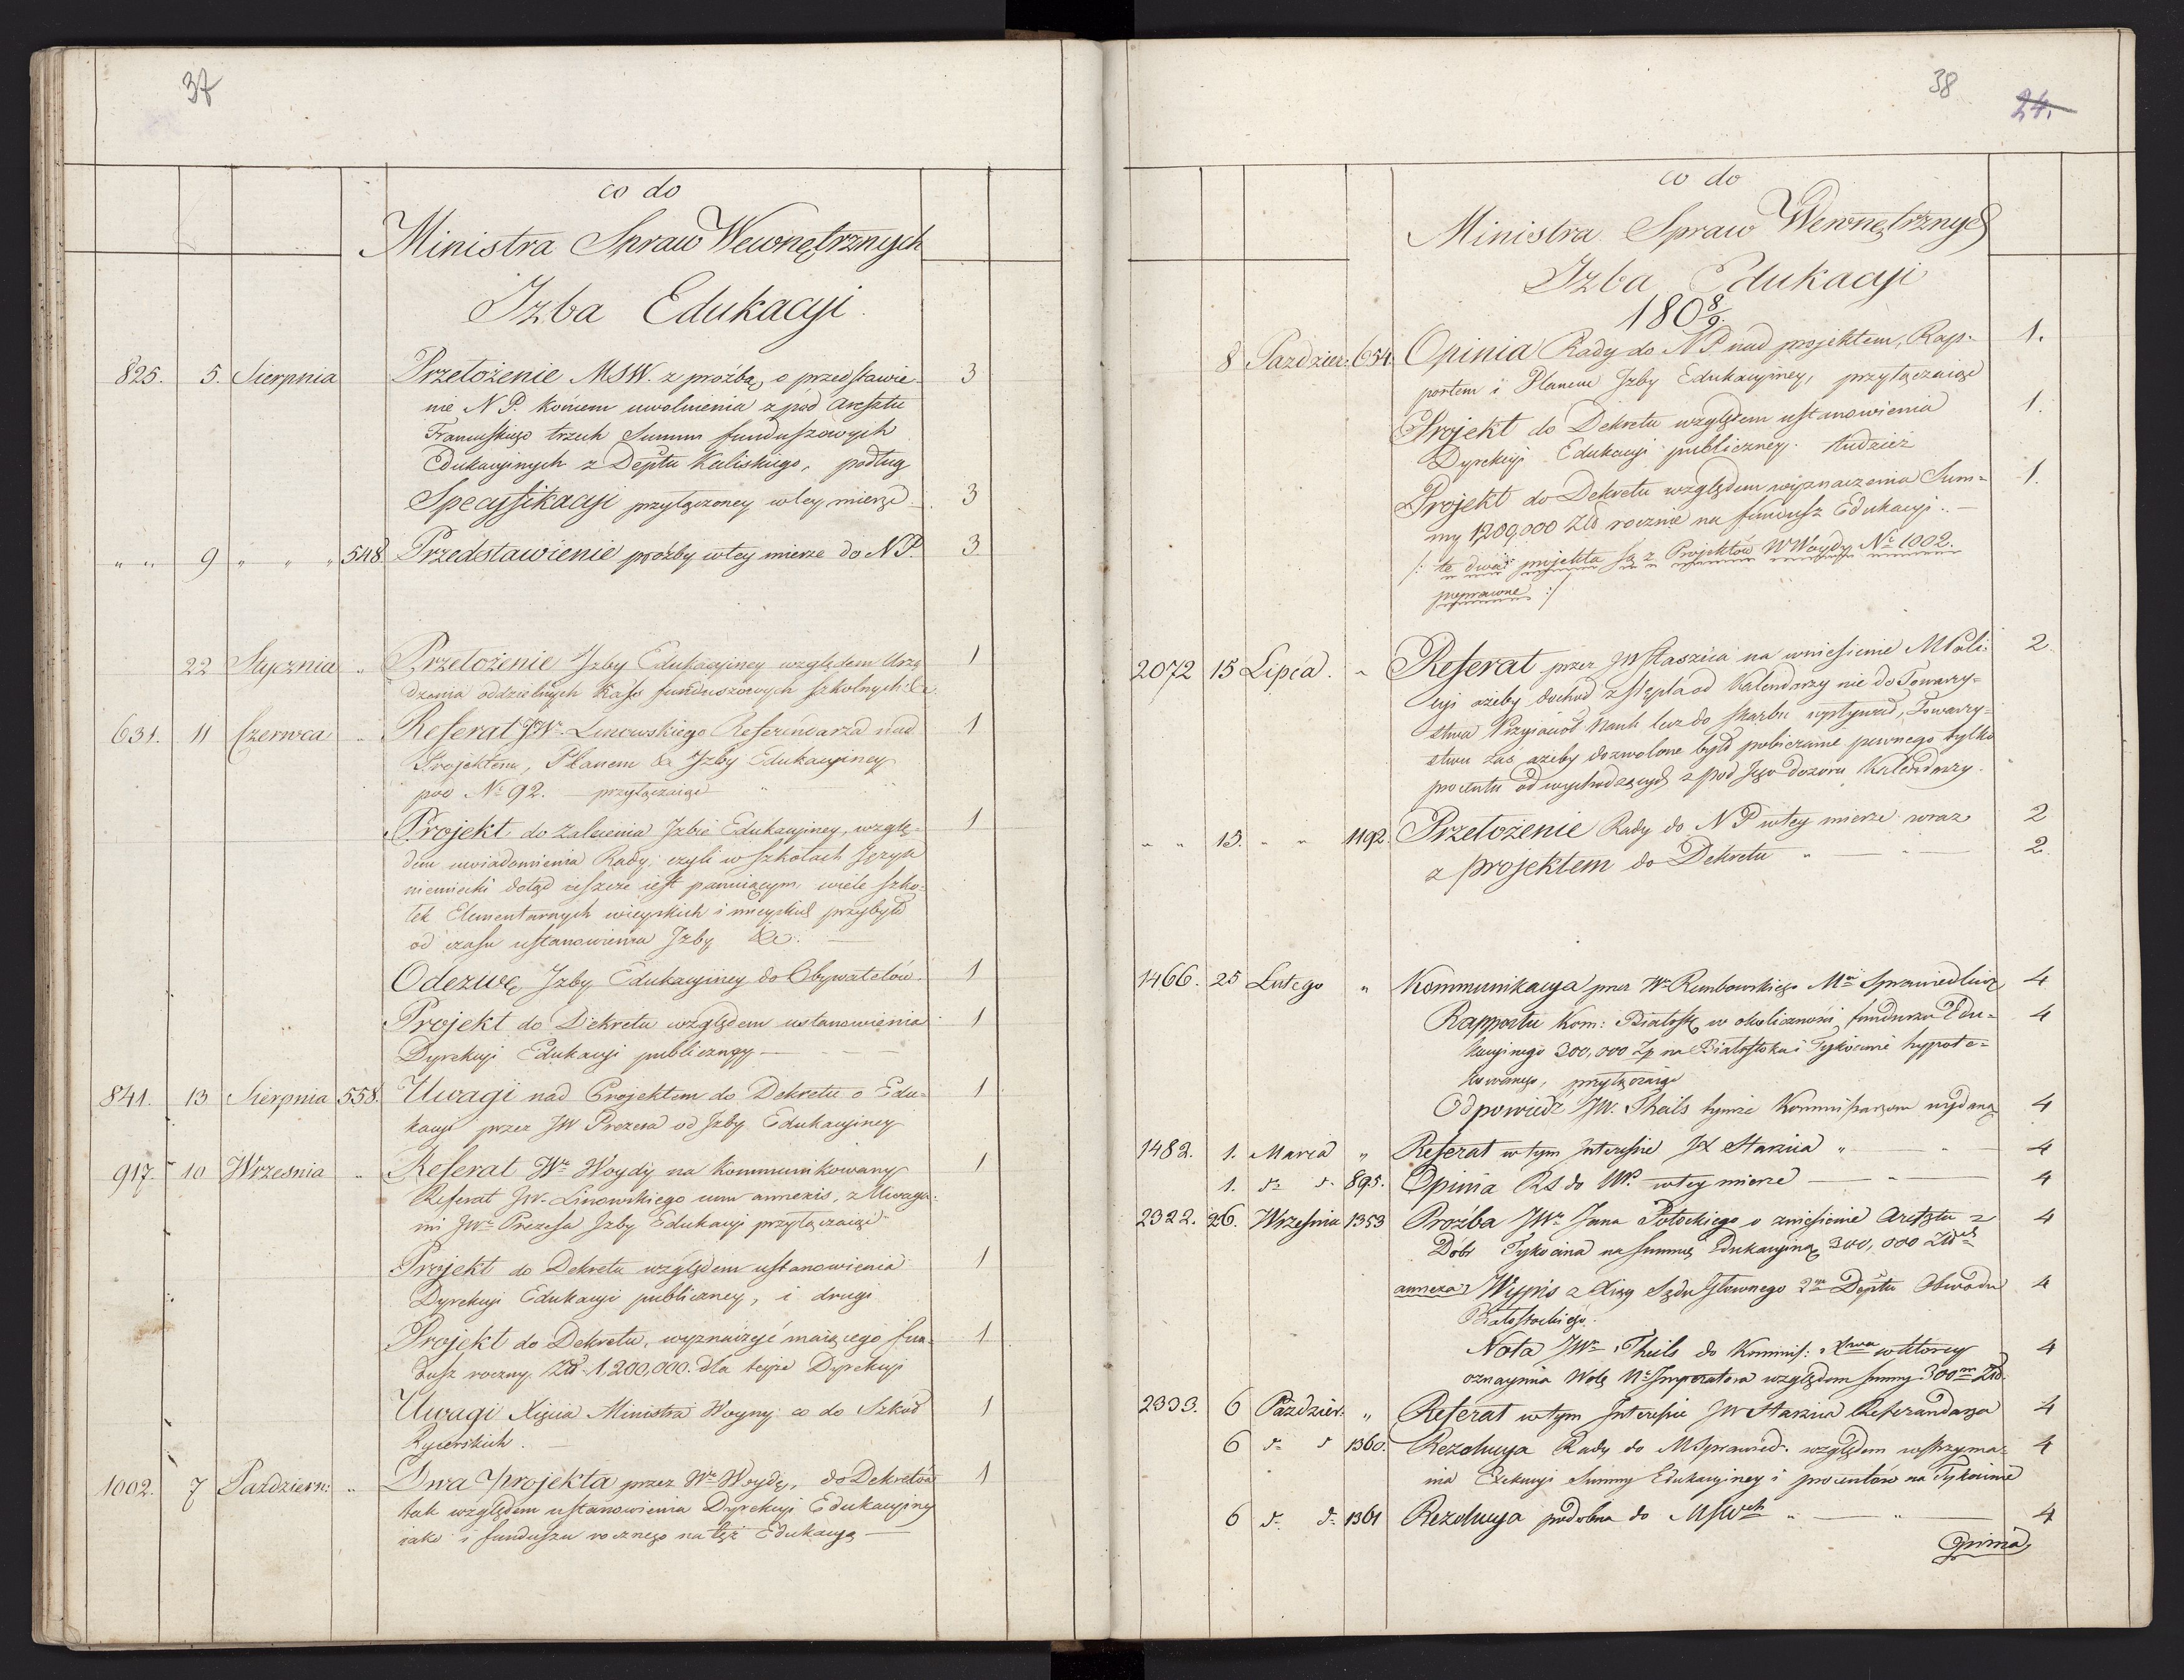 37
co do
Ministra Spraw Wewnętrznych
Izba Edukacyi
825. 5. Sierpnia Przełożenie MSW. z proźbą o przedstawie- 3
nie N P. końcem uwolnienia z pod Aresztu
Francuskiego trzech Summ funduszowych
Edukacyinych z Deptu Kaliskiego, podług
Specyfikacyi przyłączoney w tey mierze 3
" " 9 " " " 548 Przedstawienie proźby w tey mierze do N P. 3
22 Stycznia " Przełożenie Izby Edukacyiney względem Urzą
dzenia oddzielnych Kass funduszowych szkolnych &c 1
631. 11 Czerwca " Referat JWº Linowskiego Referendarza nad 1
Projektem, Planem &c Izby Edukacyiney
pod Nº 92. — przyłączaiąc "
Projekt do zalecenia Izbie Edukacyiney, wzglę- 1
dem uwiadomienia Rady, czyli w szkołach Język
niemiecki dotąd ieszcze iest panuiącym, wiele szko-
łek Elementarnych wieyskich i mieyskich przybyło
od czasu ustanowienia Izby &c. —
Odezwę Izby Edukacyiney do Obywatelów. 1
Projekt do Dekretu względem ustanowienia 1
Dyrekcyi Edukacyi publiczney — — —
841. 13 Sierpnia 558. Uwagi nad Projektem do Dekretu o Edu- 1
kacyi przez JW Prezesa od Izby Edukacyiney
917. 10 Wrzesnia " Referat Wº Woydy na Kommunikowany 1
Referat JW. Linowskiego cum annexis, z Uwaga-
mi JWº Prezesa Izby Edukacyi przyłączaiąc
Projekt do Dekretu względem ustanowienia 1
Dyrekcyi Edukacyi publiczney, i drugi
Projekt do Dekretu, wyznaczyć maiącego fun- 1
dusz roczny Złº 1,200,000. dla teyże Dyrekcyi
Uwagi Xięcia Ministra Woyny co do Szkół 1
Rycerskich. —
1002. 7 Październ: " Dwa projekta przez Wº Woydę, do Dekretów 1
tak względem ustanowienia Dyrekcyi Edukacyiney
iako i funduszu rocznego na tęż Edukacyą —
38
24.
co do
Ministra Spraw Wewnętrznych
Izba Edukacyi
1808/9.
8 Paździer: 654. Opinia Rady do N P nad projektem, Rap- 1.
portem i Planem Izby Edukacyiney, przyłączaiąc
Projekt do Dekretu względem ustanowienia 1.
Dyrekcyi Edukacyi publiczney. tudzież
Projekt do Dekretu względem wyznaczenia Sum- 1.
my 1,200,000 Złº rocznie na fundusz Edukacyi. —
/: te dwa projekta są z Projektów W Woydy Nº 1002.
poprawne :/
2072 15 Lipca. " Referat przez JW Staszica na wniesienie M Poli- 2
cyi ażeby dochód z stępla od Kalendarzy nie do Towarzy-
stwa Przyiaciół Nauk lecz do skarbu wpływał, Towarzy-
stwu zaś ażeby dozwolone było pobieranie pewnego tylko
procentu od wychodzących z pod Jego dozoru Kalendarzy.
" " 15. " " 1192. Przełożenie Rady do N P w tey mierze wraz 2
z projektem do Dekretu " — " — 2.
1466. 25 Lutego " Kommunikacya przez Wº Rembowskiego Mª Sprawiedliwo 4
Rapportu Kom: Białostº w okoliczności funduszu Edu- 4
kacyinego 300,000 Zp na Białostoku i Tykocinie hypote-
kowanego, przyłączaiąc
Odpowiedź JW. Theils tymże Kommissarzom wydaną 4
1482. 1. Marca " Referat w tym Interesie JX Staszica " — " — 4
1. dº dº 895. Opinia RS do NP. w tey mierze — " — 4
2322. 26. Wrzesnia 1353 Proźba JWº Jana Potockiego o zniesienie Aresztu z 4
Dóbr Tykocina na summę Edukacyiną 300,000 Złch
annexa: Wypis z Xiąg Sądu Głównego 2go Deptu Obwodu 4
Białostockiego.
Nota JWº Theils do Kommis: w którey 4
oznaymia Wolę Nº Imperatora względem summy 300m Zło.
2333. 6 Paździer. " Referat w tym Interesie JW Staszica Referendarza 4
6 dº dº 1360. Rezolucya Rady do MSprawied. względem wstrzyma- 4
nia Exekucyi Summy Edukacyiney i procentów na Tykocinie
6 dº dº 1361 Rezolucya podobna do MSWch " — " — 4
Opinia